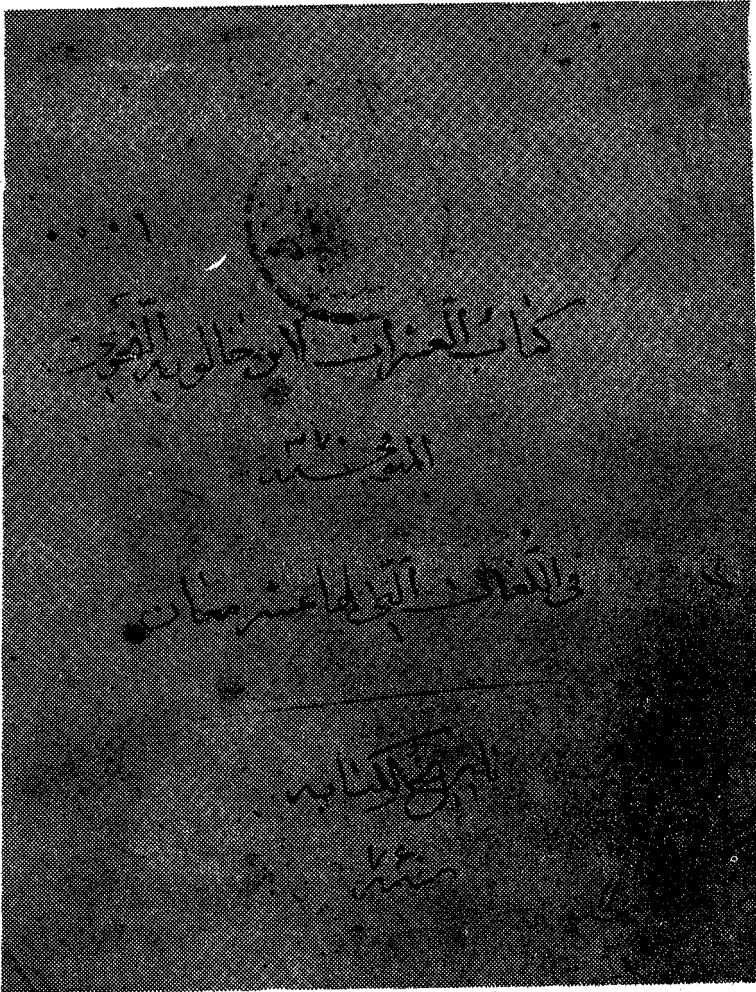 كتاب العشرات لابن خالويه النحوي
المتوفى سنة ٣٧٠
في اللغات التي لها عشر معان
تاريخ الكتابه
سنة ٧٤٠